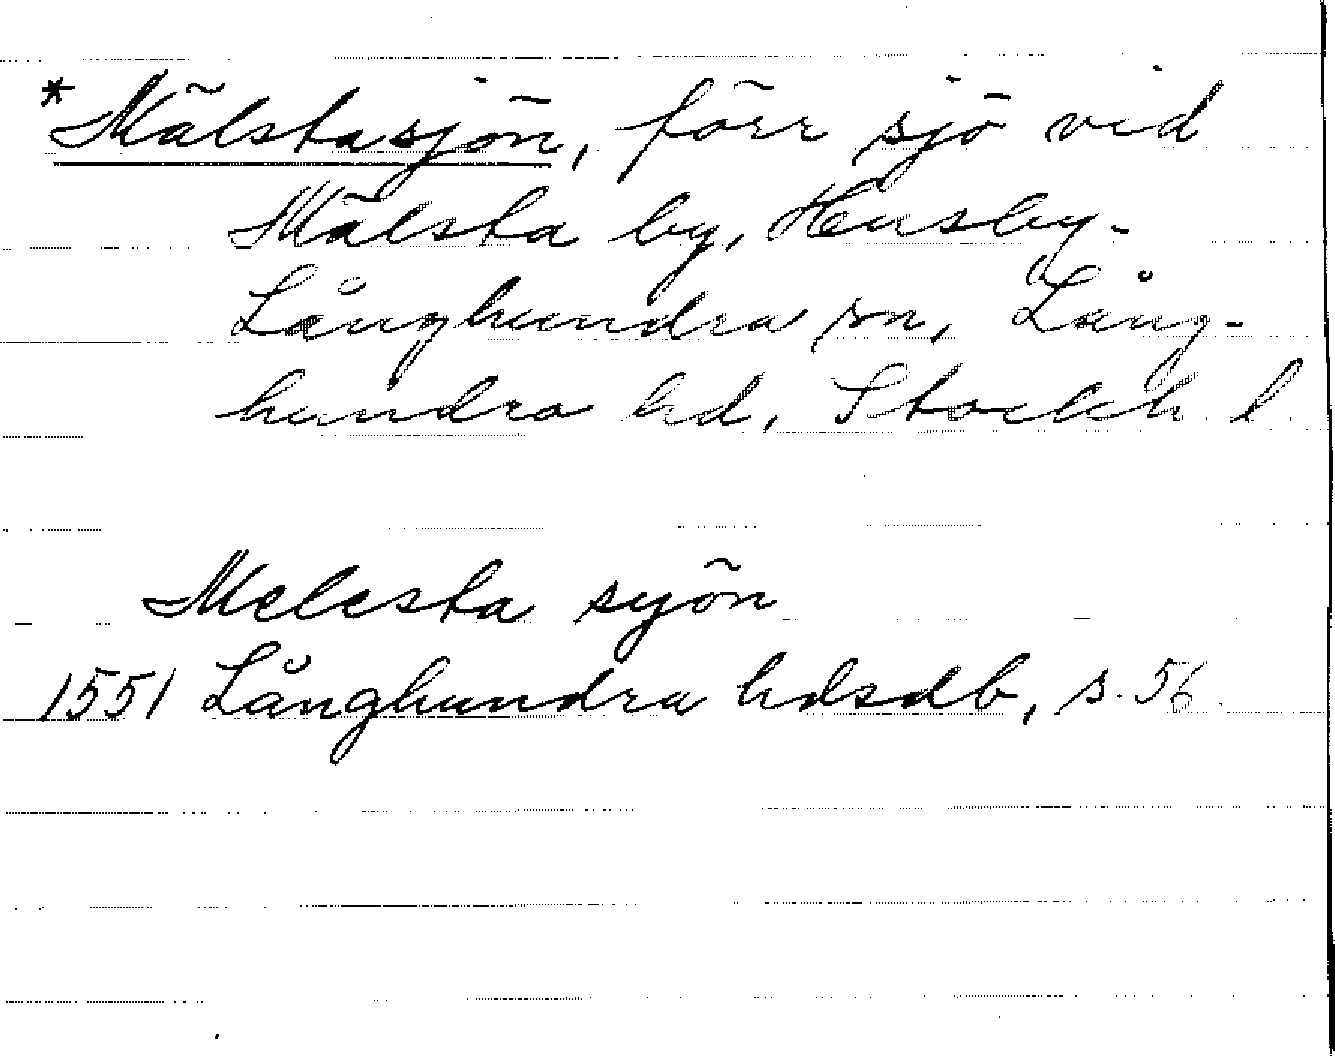 *Mälstasjön, förr sjö vid
Mälsta by, Husby-
Långhundra sn, Lång-
hundra hd, Stockh. l.
Melesta syön
1551 Långhundra hdsdb, s. 56.